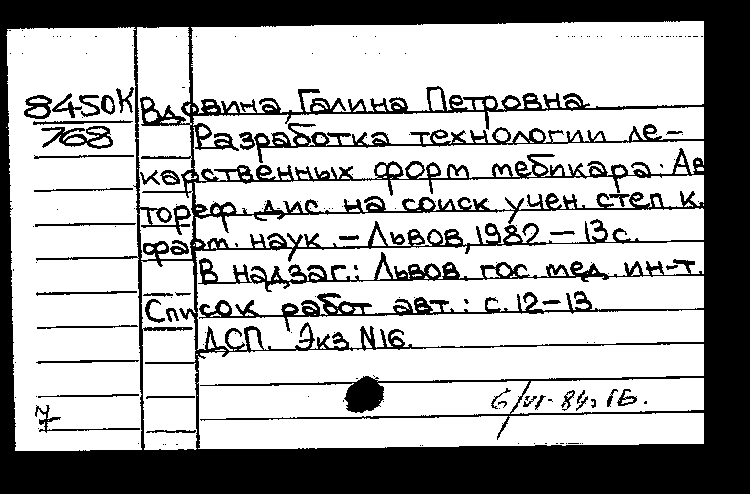 8450К Вдовина, Галина Петровна
768 Разработка технологии ле-
карственных форм мебикара: Ав
тореф. дис. на соиск учен. степ к.
фарм. наук. – Львов, 1982. – 13 с.
В надзаг.: Львов. гос. мед. ин-т.
Список работ авт.: с. 12–13
ДСП. Экз N16.
6/VI-84г ГБ.